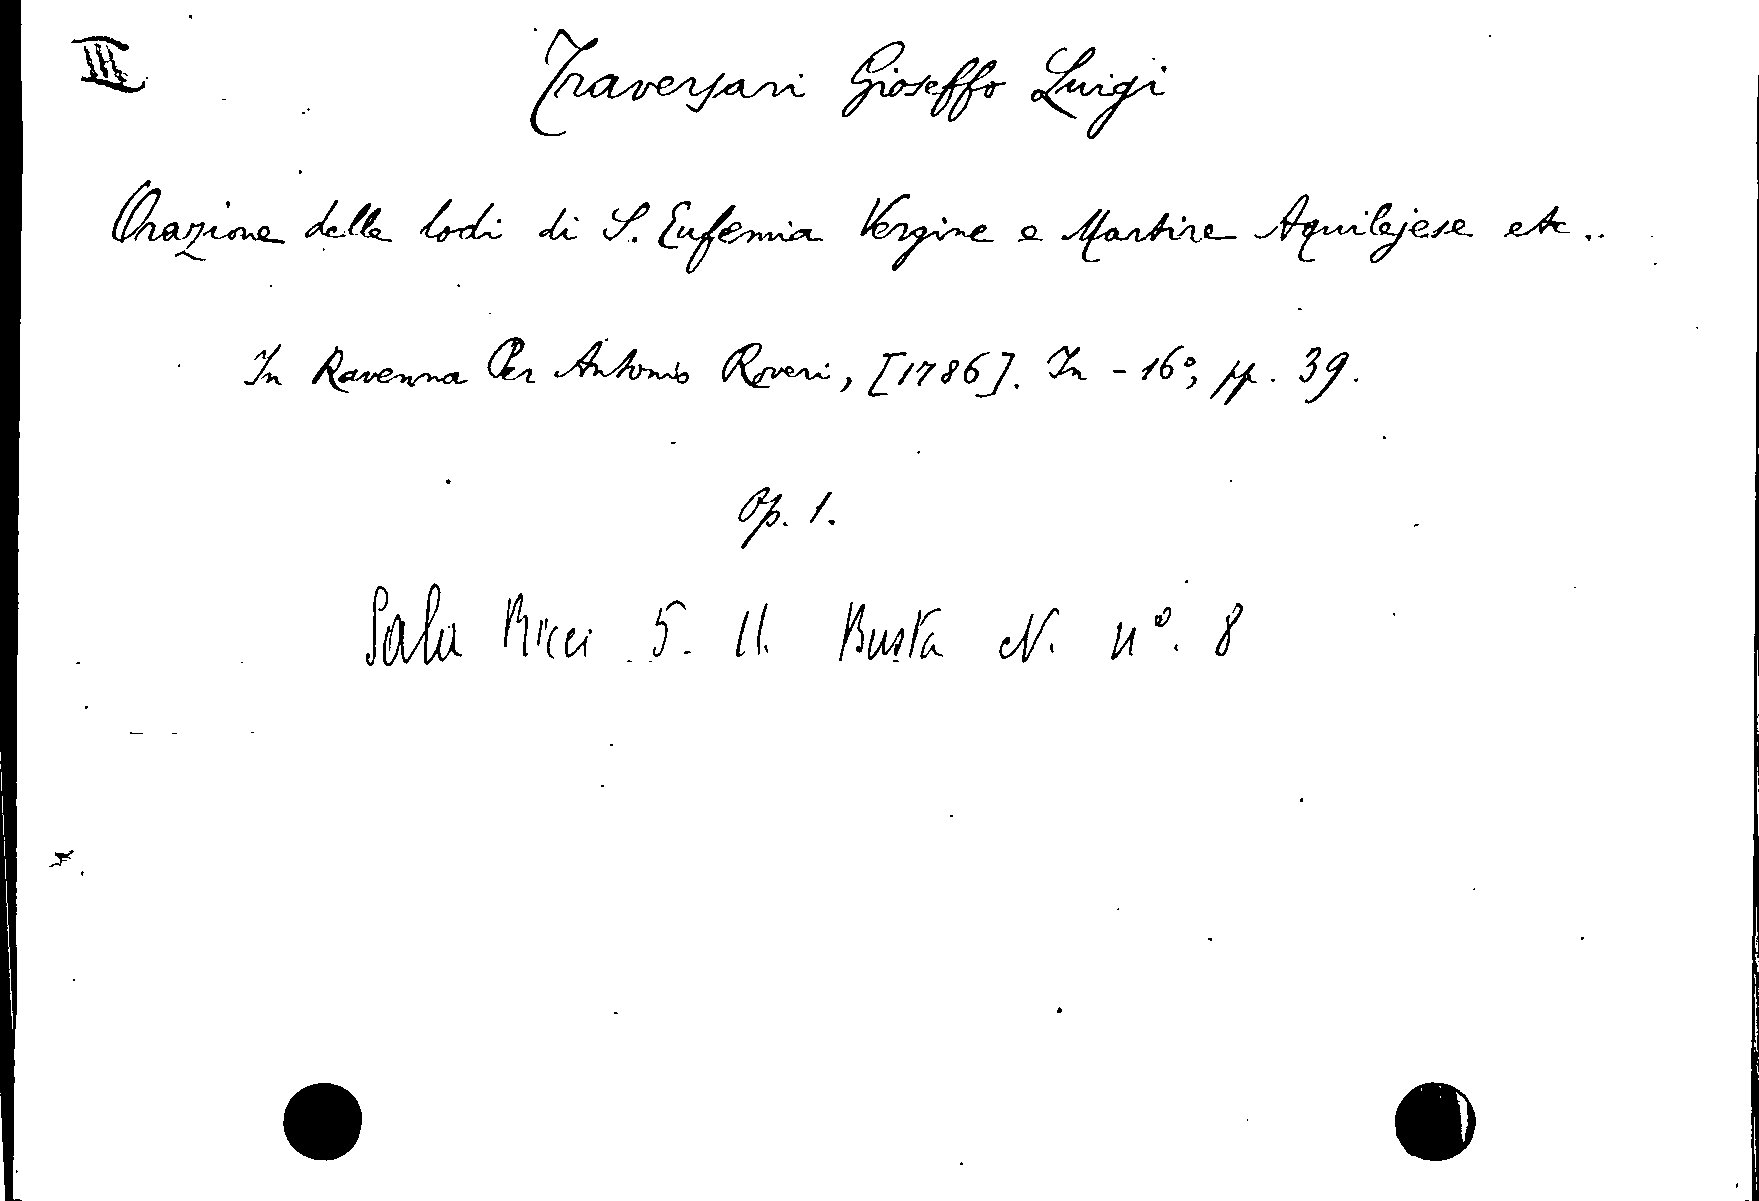 III
Traversari Gioseffo Luigi
Orazione delle lodi di S. Eufemia Vergine e Martire Aquilejese etc..
In Ravenna Per Antonio Roveri, [1786]. In - 16°, pp. 39.
Op. 1.
Sala Ricci 5. II. Busta N. n°. 8